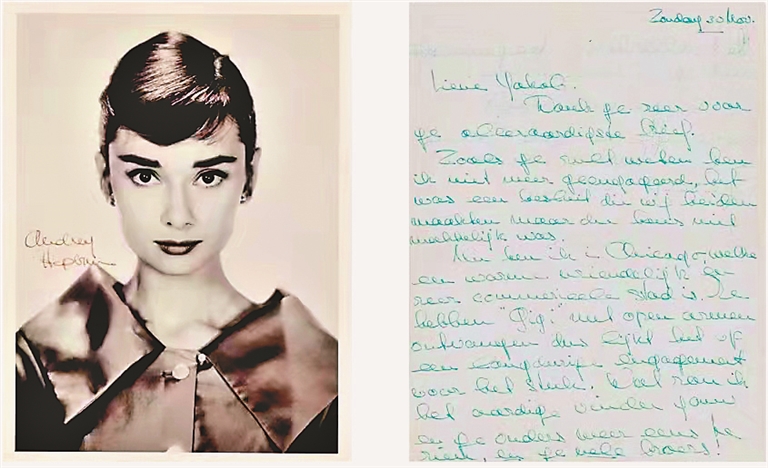 Audrey
Hepburn
Zondag 30 Nov.
Lieve Yakob.
Dank je zeer voor
je alleraardigste brief.
Zooals je zult weten ben
ik niet meer geengageerd, het
was een besluit die wij beiden
maakten maar die heus niet
makkelijk was.
Nu ben ik in Chicago – welke
een warme vriendelijk en
zeer commerciele stad is. Ze
hebben "Gigi" met open armen
ontvangen dus lijkt het op
een langdurige engagement
voor het stuk. Wat zou ik
het aardig vinden jouw
en je ouders weer eens te
zien, en je vele broers!